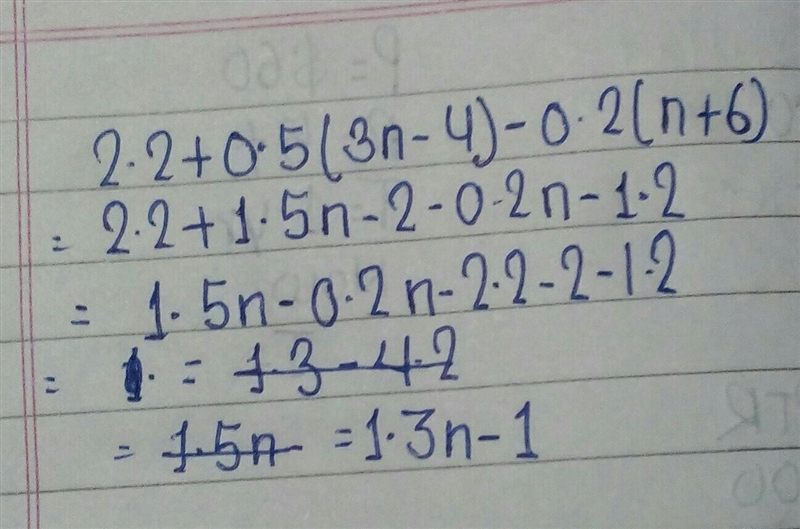 2.2+0.5(3n-4)-0.2(n+6)
= 2.2+1.5n-2-0.2n-1.2
= 1.5n-0.2n-2.2-2-1.2
= 1. = 1.3-4.2
= 1.5n = 1.3n-1